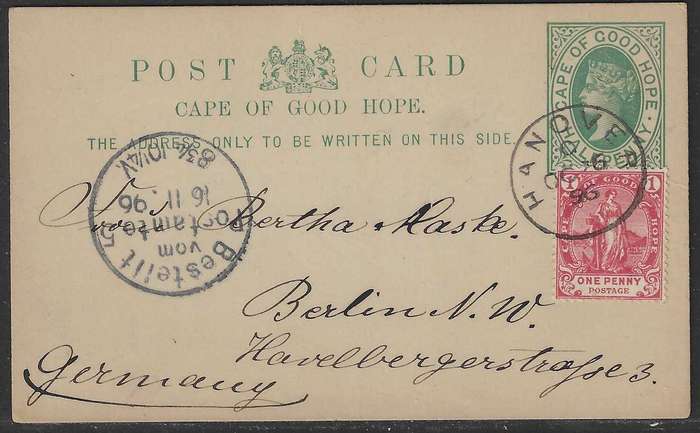 POST CARD
CAPE OF GOOD HOPE.
THE ADDRESS ONLY TO BE WRITTEN ON THIS SIDE.
CAPE OF GOOD HOPE
HALF PENNY
HANOVER
OC 26
96
CAPE OF GOOD HOPE
1 1
ONE PENNY
POSTAGE
Bestellt
vom
Postamte
16 11. 96
Bertha Maske.
Berlin N. W.
Havelbergerstrasse 3.
Germany